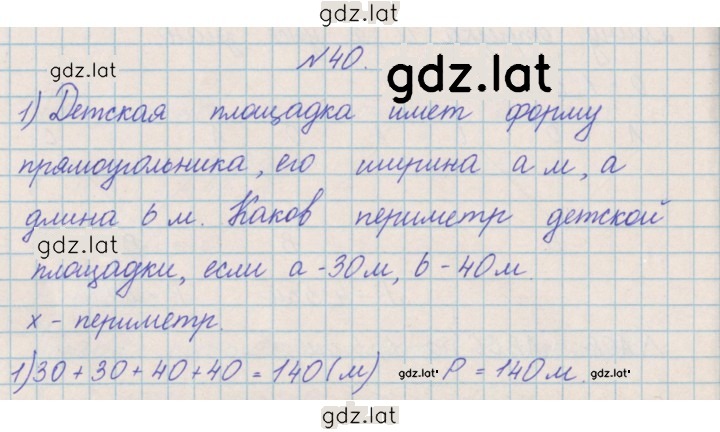 gdz.lat
№40.
gdz.lat
gdz.lat
1) Детская площадка имет форму
прямоугольника, его ширина а м, а
длина b м. Каков периметр детской
gdz.lat
площадки, если а - 30 м, b - 40 м.
х - периметр.
1) 30 + 30 + 40 + 40 = 140 (м) gdz.lat P = 140 м. gdz.lat
gdz.lat